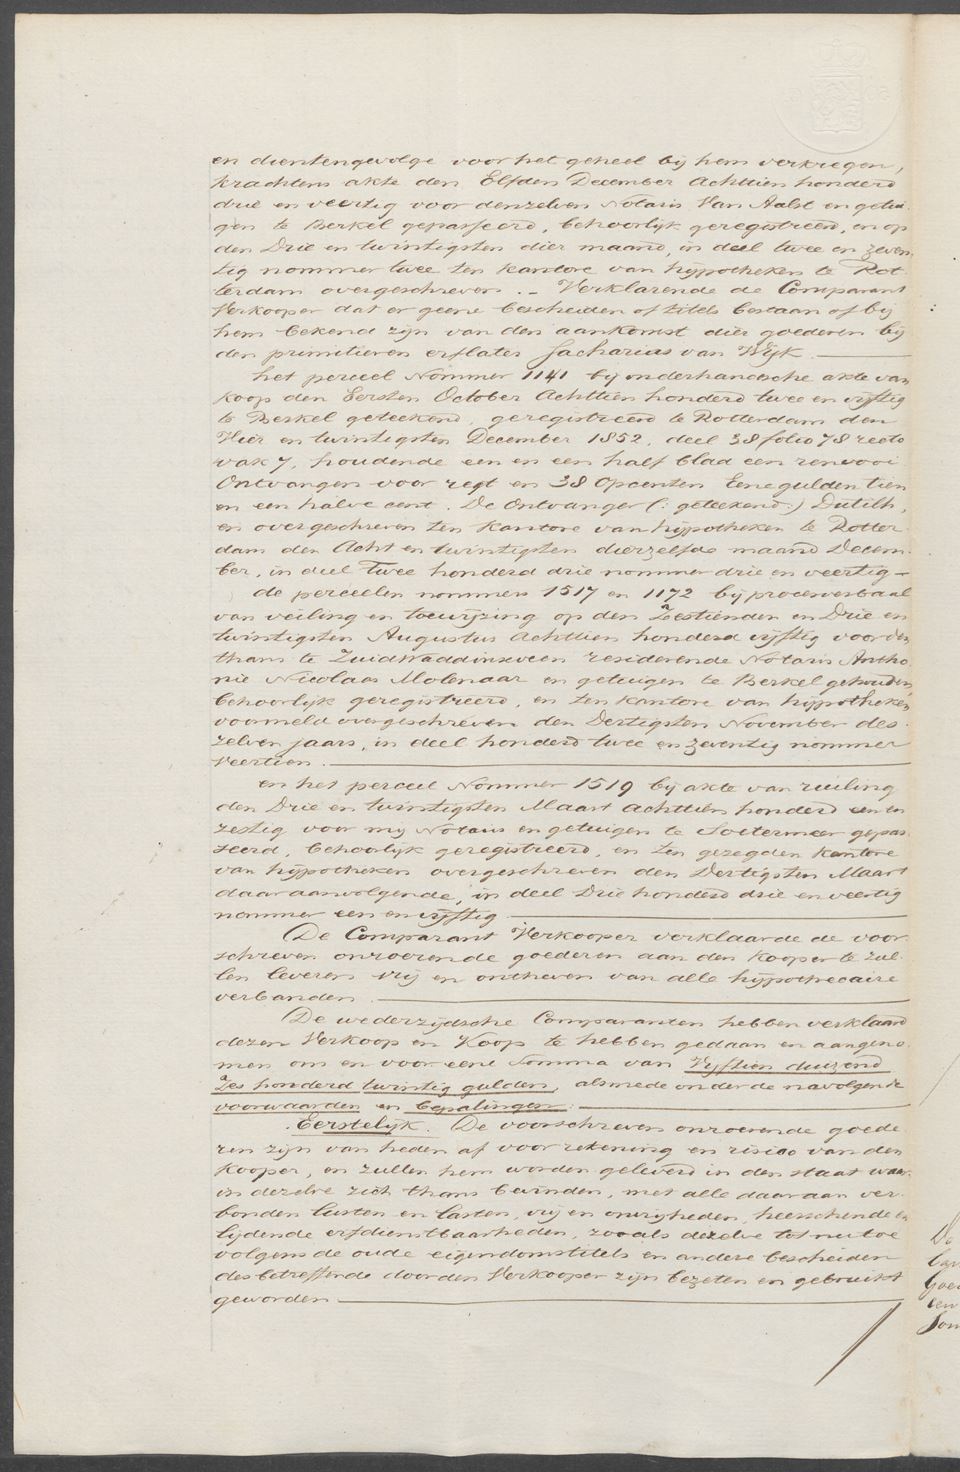 en dientengevolge voor het geheel bij hem verkregen,
krachtens akte den Elfden December Achttien honderd
drie en veertig voor denzelven Notaris Van Aalst en getui
gen te Berkel gepasseerd, behoorlijk geregistreerd, en op
den Drie en twintigsten dier maand, in deel twee en zeven
tig nommer twee ten kantore van hypotheken te Rot-
terdam overgeschreven. – Verklarende de Comparant
Verkooper dat er geene bescheiden of titels bestaan of bij
hem bekend zijn van den aankomst dier goederen bij
den primitieven erflater Zacharias van Wijk.
het perceel Nommer 1141 bij onderhandsche akte van
koop den Eersten October Achttien honderd twee en vijftig
te Berkel geteekend, geregistreerd te Rotterdam den
Vier en twintigsten December 1852, deel 38 folio 78 recto
vak 7, houdende een en een half blad een renvooi
Ontvangen voor regt en 38 Opcenten Eene gulden tien
en een halve cent. De Ontvanger (: geteekend :) Dutilh,
en overgeschreven ten kantore van hypotheken te Rotter-
dam den Acht en twintigsten dierzelfde maand Decem-
ber, in deel Twee honderd drie nommer drie en veertig –
de perceelen nommers 1517 en 1172 bij procesverbaal
van veiling en toewijzing op den Zestienden en Drie en
twintigsten Augustus Achttien honderd vijftig voor den
thans te Zuidwaddinxveen residerende Notaris Antho
nie Nicolaas Molenaar en getuigen te Berkel gehouden,
behoorlijk geregistreerd, en ten kantore van hypotheken
voormeld overgeschreven den Dertigsten November des-
zelven jaars, in deel honderd twee en zeventig nommer
veertien.
en het perceel Nommer 1519 bij akte van ruiling
den Drie en twintigsten Maart Achttien honderd een en
zestig voor mij Notaris en getuigen te Soetermeer gepas
seerd, behoorlijk geregistreerd, en ten gezegden kantore
van hypotheken overgeschreven den Dertigsten Maart
daaraanvolgende, in deel Drie honderd drie en veertig
nommer een en vijftig
De Comparant Verkooper verklaarde de voor
schreven onroerende goederen aan den Kooper te zul-
len leveren vrij en ontheven van alle hypothecaire
verbanden.
De wederzijdsche Comparanten hebben verklaard
dezen Verkoop en Koop te hebben gedaan en aangeno-
men om en voor eene Somma van Vijftien duizend
Zes honderd twintig gulden, alsmede onder de navolgende
voorwaarden en bepalingen:
Eerstelijk. De voorschreven onroerende goede
ren zijn van heden af voor rekening en risico van den
Kooper, en zullen hem worden geleverd in den staat waar
in dezelve zich thans bevinden, met alle daaraan ver-
bonden lusten en lasten, vrij en onvrijheden, heerschende en
lijdende erfdienstbaarheden, zooals dezelve tot nu toe
volgens de oude eigendomstitels en andere bescheiden
desbetreffende door den Verkooper zijn bezeten en gebruikt
geworden